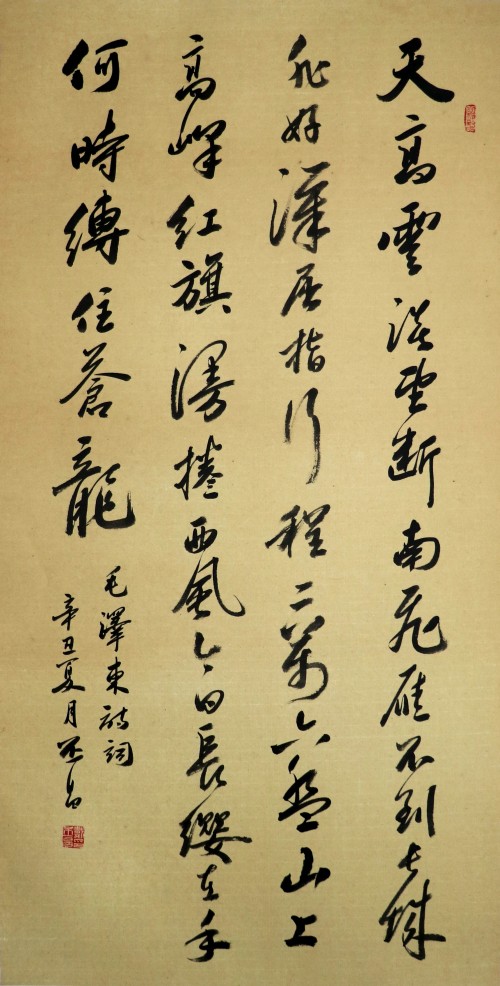 天高雲淡望断南飛雁不到長城
非好漢屈指行程二萬六盤山上
高峰红旗漫捲西風今日長纓在手
何時縛住蒼龍
毛澤東詩詞
辛丑夏月